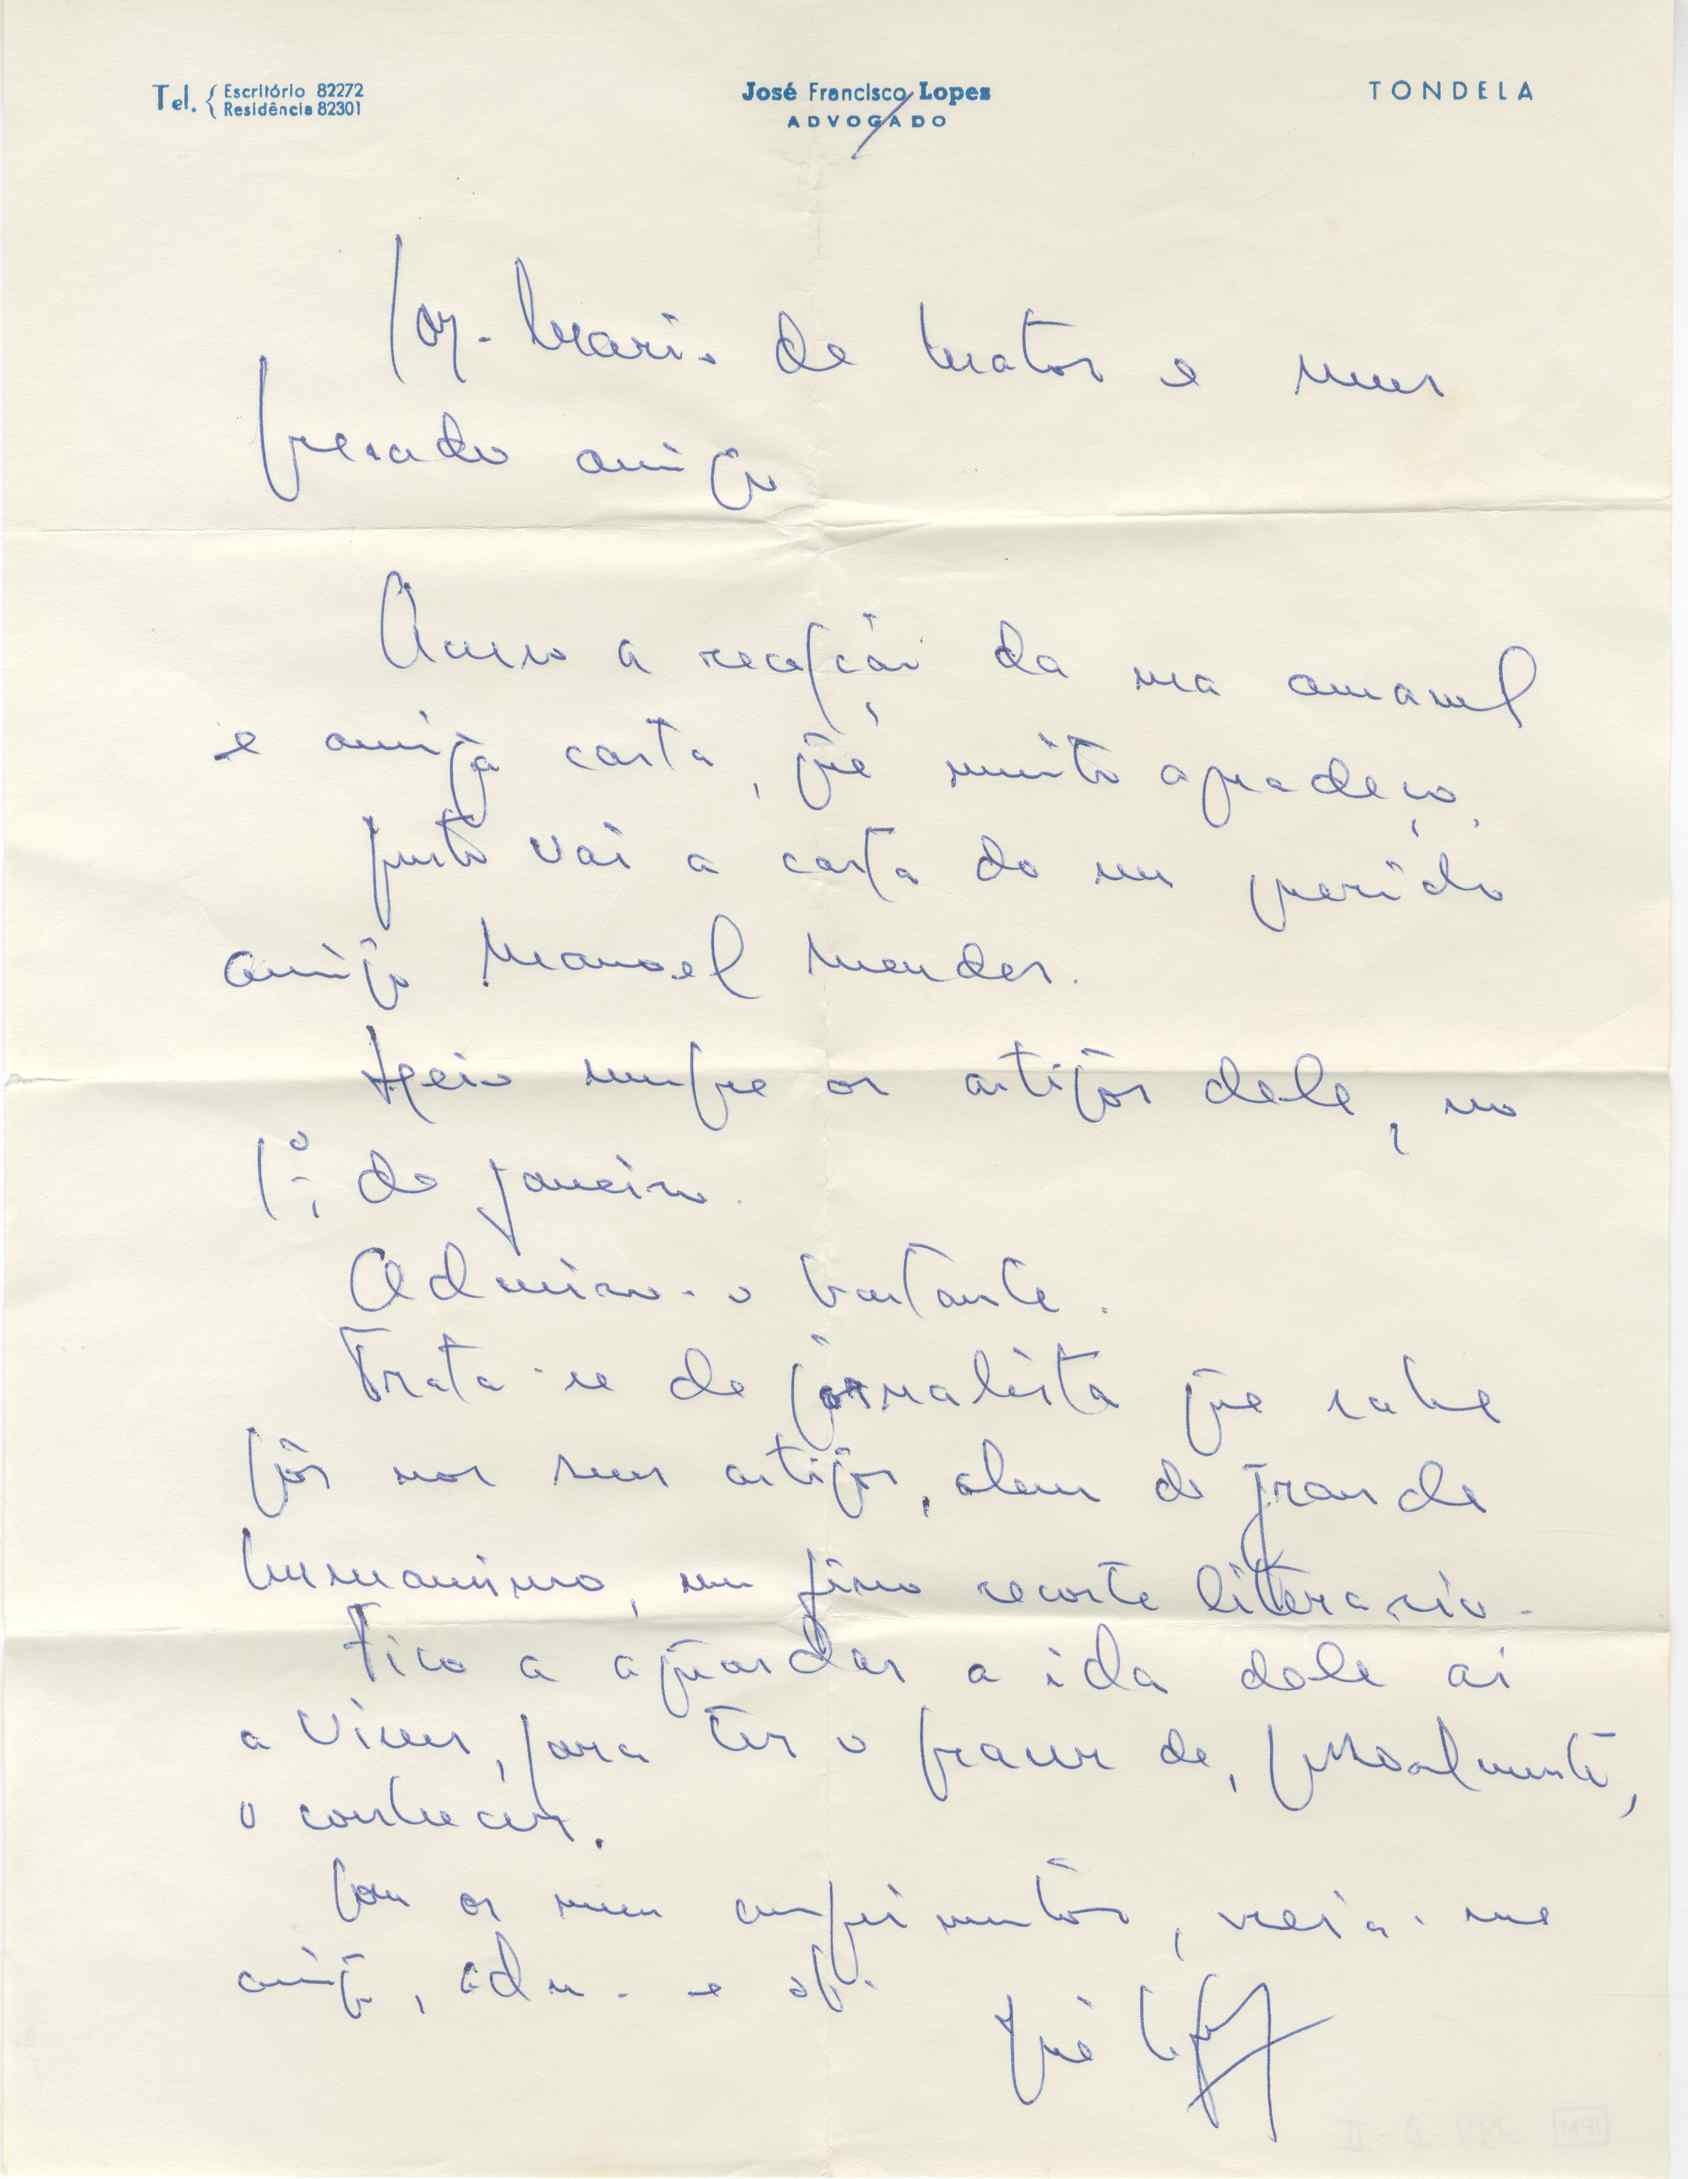 Tel. { Escritório 82272
Residência 82301
José Francisco Lopes
ADVOGADO
TONDELA
Mario de Matos e meu
prezado amigo
Acuso a recepção da sua amavel
e amiga carta, que muito agradeço.
Junto vai a carta do seu querido
amigo Manoel Mendes.
Leio sempre os artigos dele, no
1º, de Janeiro.
Admiro-o bastante.
Trata-se de jornalista que sabe
pôr nos seus artigos, alem de grande
humanismo, um fino recorte literario.
Fico a aguardar a ida dele ai
a Viseu, para ter o prazer de, pessoalmente,
o conhecer.
Com os meus cumprimentos, creia-me
amigo, adm. e obr.
José Lopes